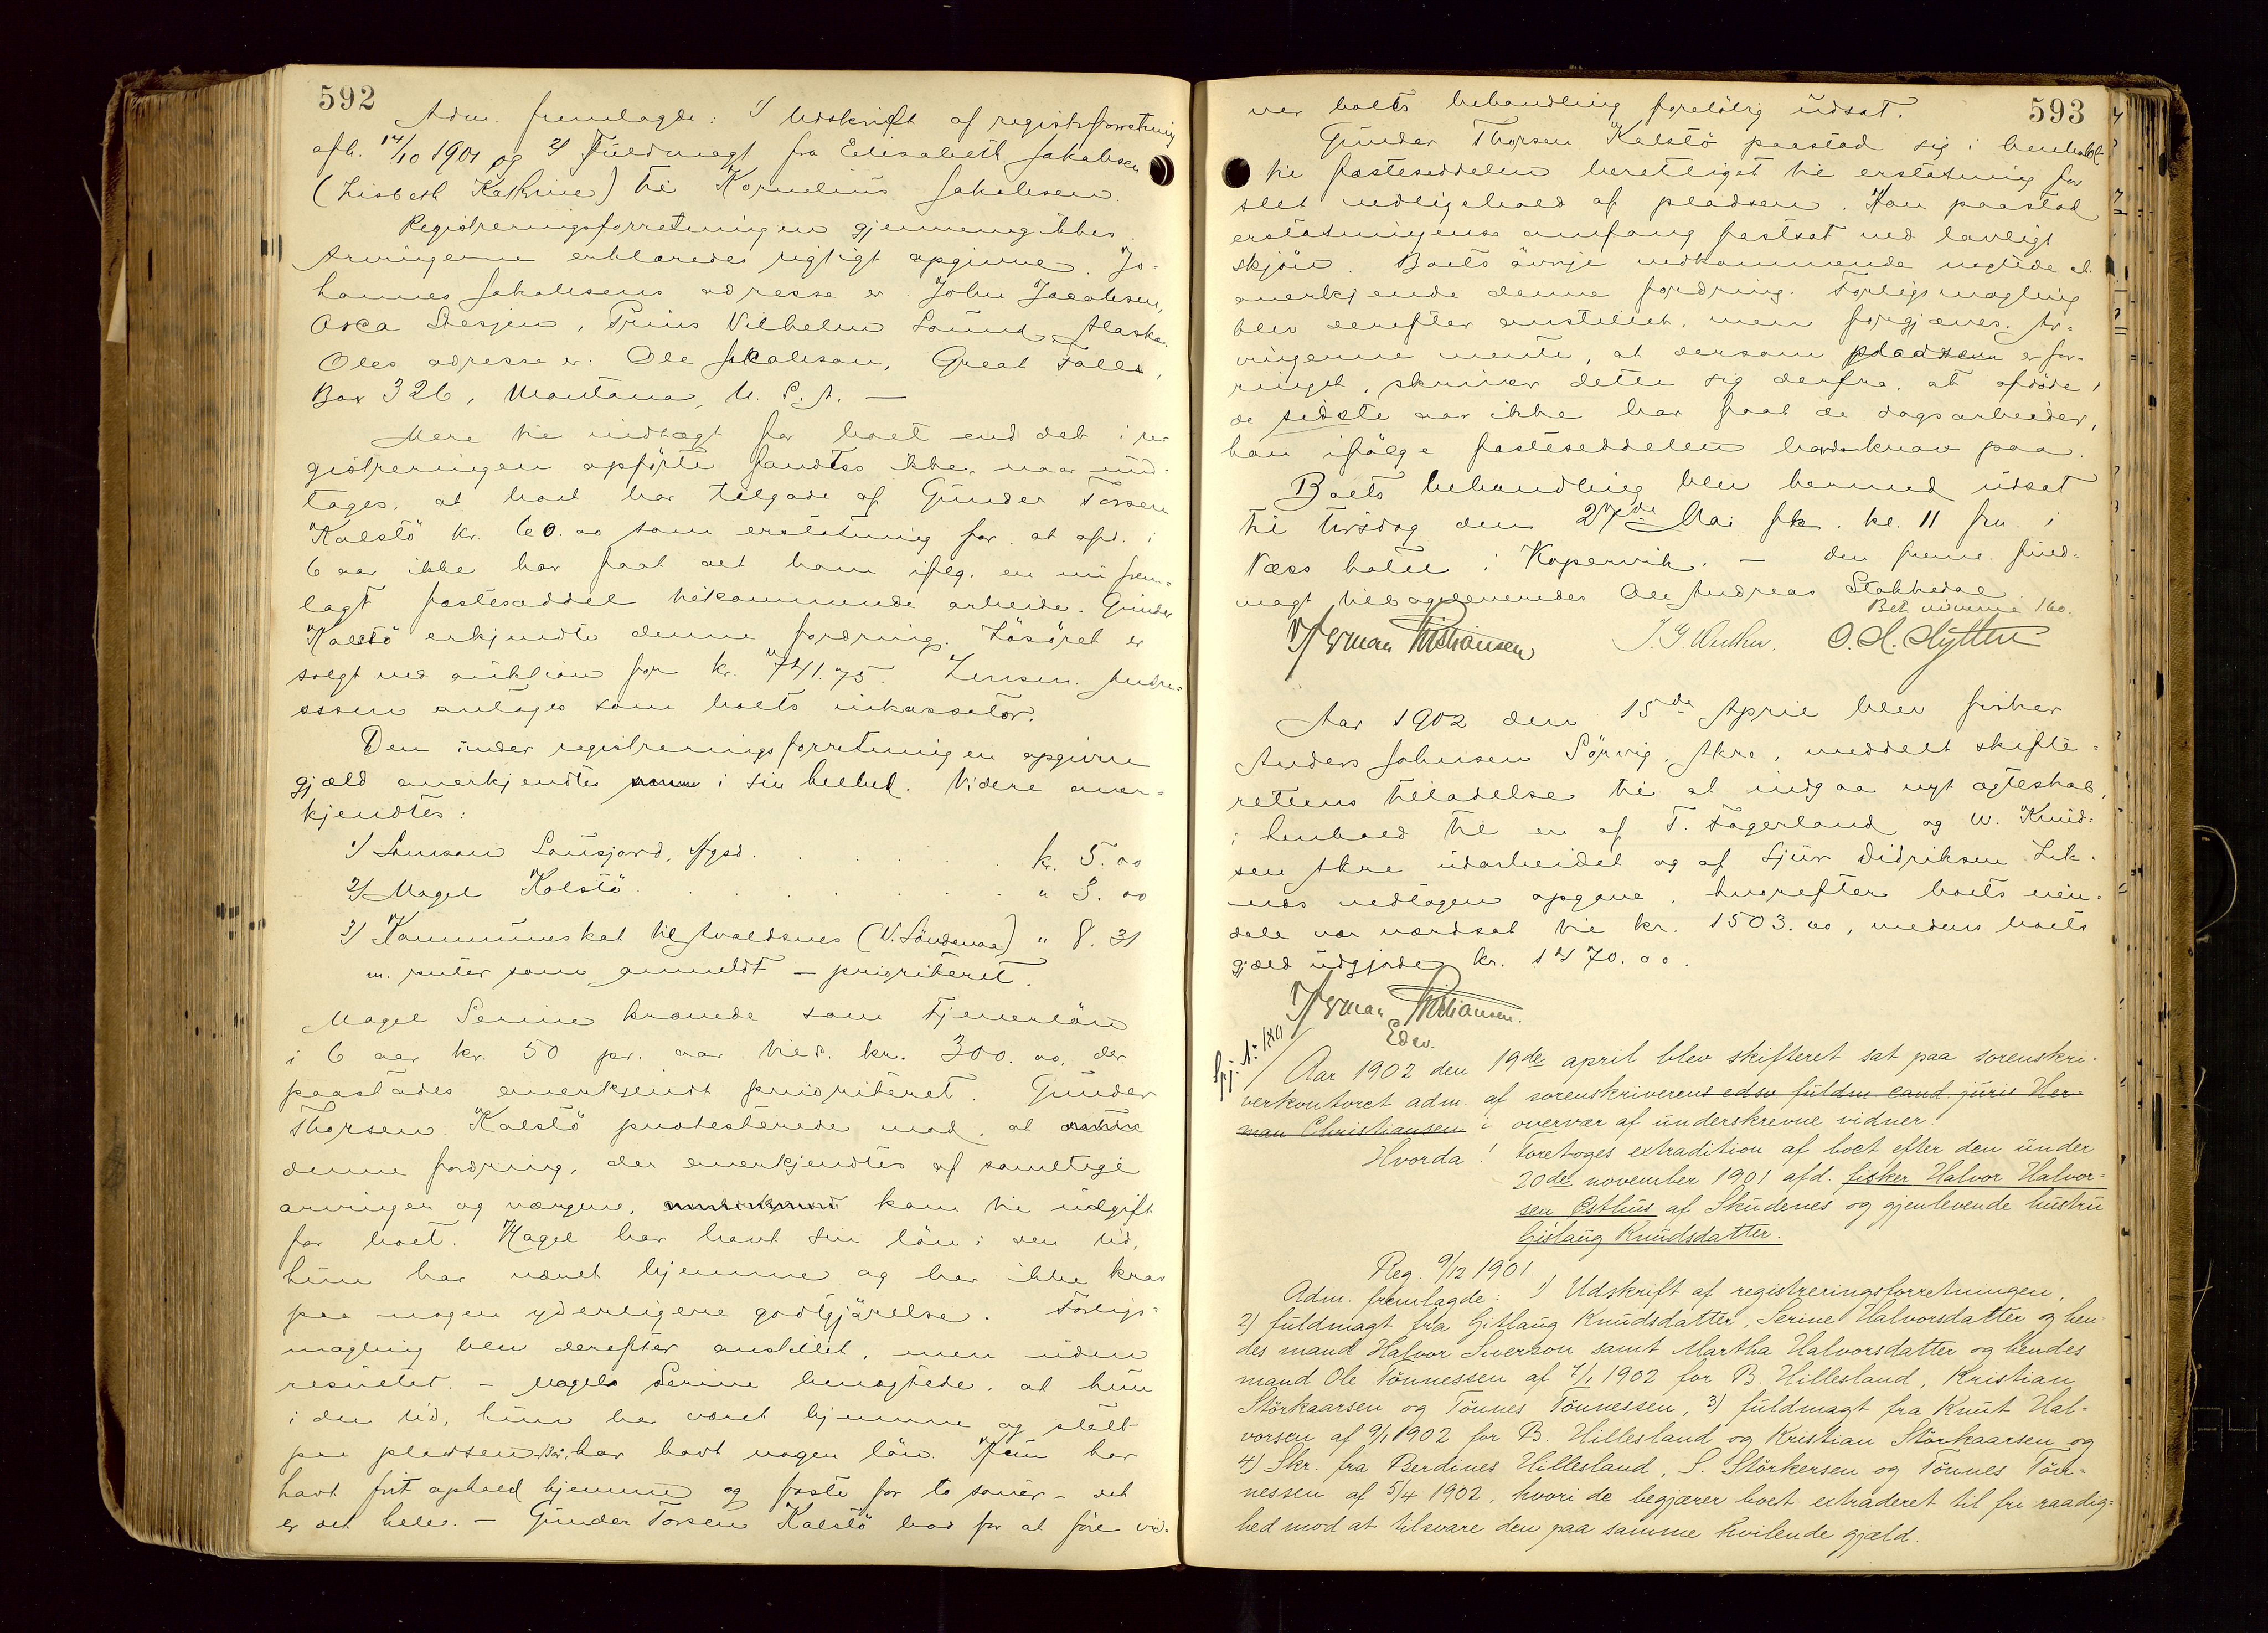 592
Adm. fremlagde: 1) Udskrift af registr.forretning
afh. 14/10 1901 og 2) Fuldmagt fra Elisabeth Jakobsen
(Lisbeth Kathrine) til Kornelius Jakobsen.
Registreringsforretningen gjennemgikkes.
Arvingerne erklæredes rigtigt opgivne. Jo-
hannes Jakobsens adresse er John Jacobsen,
Orca Stesjen, Prins Vilhelm Sound, Alaska.
Oles adresse er: Ole Jakobson, Great Falls,
Box 326, Montana, U.S.A. —
Mere til indtægt for boet end det i re-
gistreringen opførte fandtes ikke, naar und-
tages, at boet har tilgode af Gunder Torsen
Kalstö kr. 60.00 som erstatning for, at afd. i
6 aar ikke har faat det ham iflg. en nu frem-
lagt fæsteseddel tilkommende arbeide. Gunder
Kalstö erkjendte denne fordring. Løsøret er
solgt ved auktion for kr. 741.75. Lensm. Andre-
assen antoges som boets inkassator.
Den under registreringsforretningen opgivne
gjæld anerkjendtes i sin helhed. Videre aner-
kjendtes:
1) Samson Sausjord, Hgsd. kr. 5.00
2) Magel Kalstö. " 3.00
3) Kommuneskat til Avaldsnes (V. Søndenaa) " 8.31
m. renter som anmeldt – prioriteret.
Magel Serine krævede som tjenerløn
i 6 aar kr. 50 pr. aar tils. kr. 300.00, der
paastodes anerkjendt prioriteret. Gunder
Thorsen Kalstö protesterede mod, at
denne fordring, der anerkjendtes af samtlige
arvinger og værgen, kom til udgift
for boet. Magel har havt sin løn i den tid,
hun har været hjemme og har ikke krav
paa nogen yderligere godtgjørelse. Forligs-
mægling blev derefter anstillet, men uden
resultat. – Magel Serine benægtede, at hun
i den tid, hun har været hjemme og stelt
paa pladsen, har havt nogen løn. Hun har
havt frit ophold hjemme og føste for to souer – det
er det hele. – Gunder Torsen Kalstö bad for at føre vid-
593
ner boets behandling foreløbig udsat.
Gunder Thorsen Kalstö paastod sig i henhold
til fæsteseddelen berettiget til erstatning for
slet vedligehold af pladsen. Han paastod
erstatningens omfang fastsat ved lovligt
skjøn. Boets øvrige vedkommende nægtede at
anerkjende denne fordring. Forligsmægling
blev derefter anstillet, men forgjæves. Ar-
vingerne mente, at dersom pladsen er for-
ringet, skriver dette sig derfra, at afdøde i
de sidste aar ikke har faat de dagsarbeider,
han ifølge fæsteseddelen havde krav paa.
Boets behandling blev hermed udsat
til tirsdag den 27de Mai fk. kl. 11 fm. i
Næss hotel i Kopervik. — den fremm. fuld-
magt tilbageleveredes Ole Andreas Stakkedal.
Bet. vidnerne 1.60.
Herman Christiansen O. H. Hytten
Aar 1902 den 15de April blev fisker
Anders Johnsen Sørvig, Akre, meddelt skifte-
rettens tilladelse til at indgaa nyt ægteskab,
i henhold til en af T. Fagerland og W. Knud-
sen Akre udarbeidet og af Sjur Didriksen Lik-
nes vedtagen opgave, hvorefter boets eien-
dele var værdsat til kr. 1503.00, medens boets
gjæld udgjorde kr. 1470.00.
Herman Christiansen.
Edsv.
Spj. No. 180
Aar 1902 den 19de april blev skifteret sat paa sorenskri-
verkontoret adm. af sorenskriverens edsv fuldm cand. juris Her-
man Christiansen i overvær af underskrevne vidner.
Hvorda! Foretoges extradition af boet efter den under
20de november 1901 afd. fisker Halvor Halvor-
sen Østhus af Skudenes og gjenlevende hustru
Gislaug Knudsdatter.
Reg. 9/12 1901.
Adm. fremlagde: 1) Udskrift af registreringsforretningen,
2) fuldmagt fra Gitlaug Knudsdatter, Serine Halvorsdatter og hen-
des mand Halvor Siverson samt Martha Halvorsdatter og hendes
mand Ole Tönnessen af 7/1 1902 for B. Hillesland, Kristian
Störkaarsen og Tönnes Tönnessen, 3) fuldmagt fra Knut Hal-
vorsen af 9/1 1902 for B. Hillesland og Kristian Störkaarsen og
4) Skr. fra Berdines Hillesland, S. Störkersen og Tönnes Tön-
nessen af 5/4 1902, hvori de begjærer boet extraderet til fri raadig-
hed mod at tilsvare den paa samme hvilende gjæld.